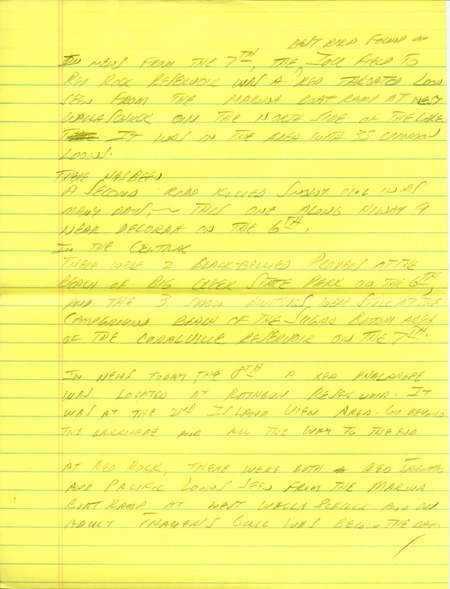 BEST BIRD FOUND ON
IN NEWS FROM THE 7TH, THE IOU FIELD TO
RED ROCK RESERVOIR WAS A RED THROATED LOON
SEEN FROM THE MARINA BOAT RAMP AT WEST
WALLASHUCK ON THE NORTH SIDE OF THE LAKE
IT WAS IN THE AREA WITH 35 COMMON
LOONS.
THERE HAS BEEN
A SECOND ROAD KILLED SNOWY OWL IN AS
MANY DAYS, THIS ONE ALONG HIWAY 9
NEAR DECORAH ON THE 6TH.
IN THE CENTRAL
THERE WERE 2 BLACK-BELLIED PLOVERS AT THE
BEACH OF BIG CREEK STATE PARK ON THE 6TH
AND THE 3 SNOW BUNTINGS WERE STILL AT THE
CAMPGROUND BEACH OF THE SUGAR BOTTOM AREA
OF THE CORALVILLE RESERVOIR ON THE 7TH.
IN NEWS TODAY THE 8TH A RED PHALAROPE
WAS LOCATED AT RATHBUN RESERVOIR. IT
WAS AT THE 2ND ISLAND VIEW AREA. GO BEYOND
THE BARRICADE AND ALL THE WAY TO THE END
AT RED ROCK, THERE WERE BOTH RED THROATED
AND PACIFIC LOONS SEEN FROM THE MARINA
BOAT RAMP AT WEST WALLASHUCK AND AN
ADULT THAYER'S GULL WAS BELOW THE DAM.